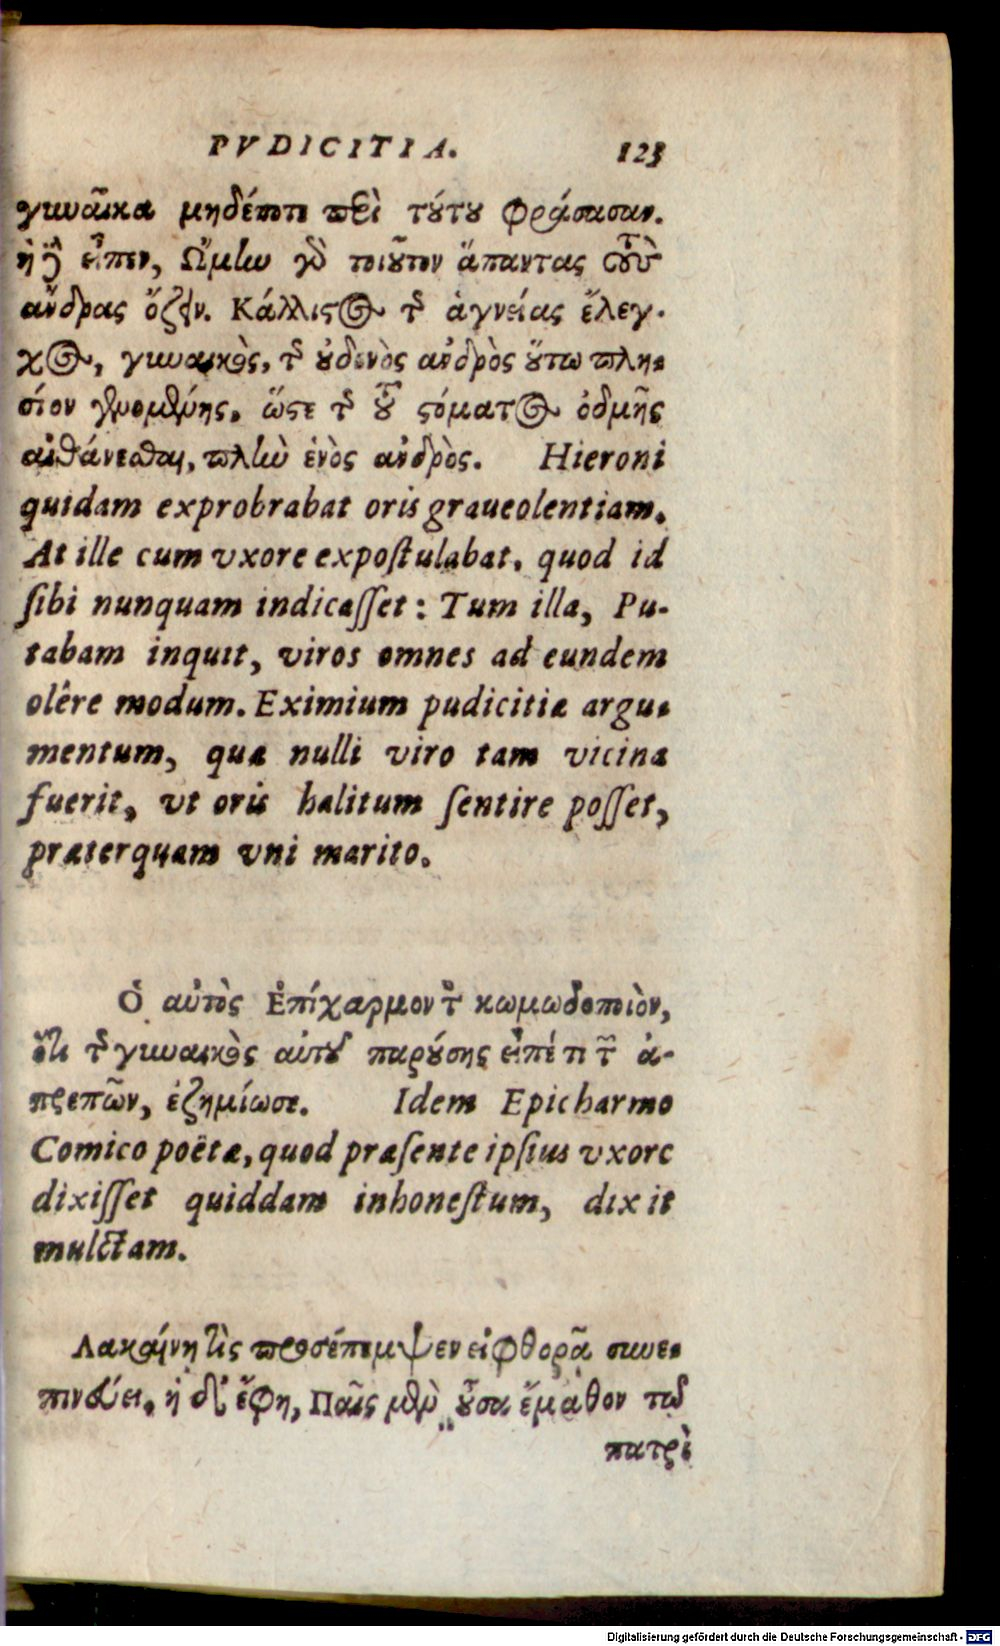 PVDICITIA. 123
γυναῖκα μηδέποτε περὶ τούτου φράσασαν.
ἡ δὲ εἶπεν, Ὤμην γὰρ τοιοῦτον ἅπαντας τοὺς
ἄνδρας ὄζειν. Κάλλιστος τῆς ἁγνείας ἔλεγ-
χος, γυναικὸς, τῆς οὐδενὸς ἀνδρὸς οὕτω πλη-
σίον γενομένης, ὥστε τῆς τοῦ στόματος ὀδμῆς
αἰσθάνεσθαι, πλὴν ἑνὸς ἀνδρὸς. Hieroni
quidam exprobrabat oris graueolentiam.
At ille cum vxore expoſtulabat, quod id
ſibi nunquam indicaſſet: Tum illa, Pu-
tabam inquit, viros omnes ad eundem
olêre modum. Eximium pudicitiæ argu-
mentum, quæ nulli viro tam vicina
fuerit, vt oris halitum ſentire poſſet,
præterquam vni marito.
Ὁ αὐτὸς Ἐπίχαρμον τὸν κωμωδοποιὸν,
ὅτι τῆς γυναικὸς αὐτοῦ παρούσης εἶπέ τι τῶν ἀ-
πρεπῶν, ἐζημίωσε. Idem Epicharmo
Comico poëtæ, quod præſente ipſius vxore
dixiſſet quiddam inhoneſtum, dixit
mulctam.
Λακαίνῃ τὶς προσέπεμψεν εἰ φθορᾷ συνε-
πινεύει. ἡ δ' ἔφη, Παῖς μὲν οὖσα ἔμαθον τῷ
πατρὶ
Digitalisierung gefördert durch die Deutsche Forschungsgemeinschaft - DFG